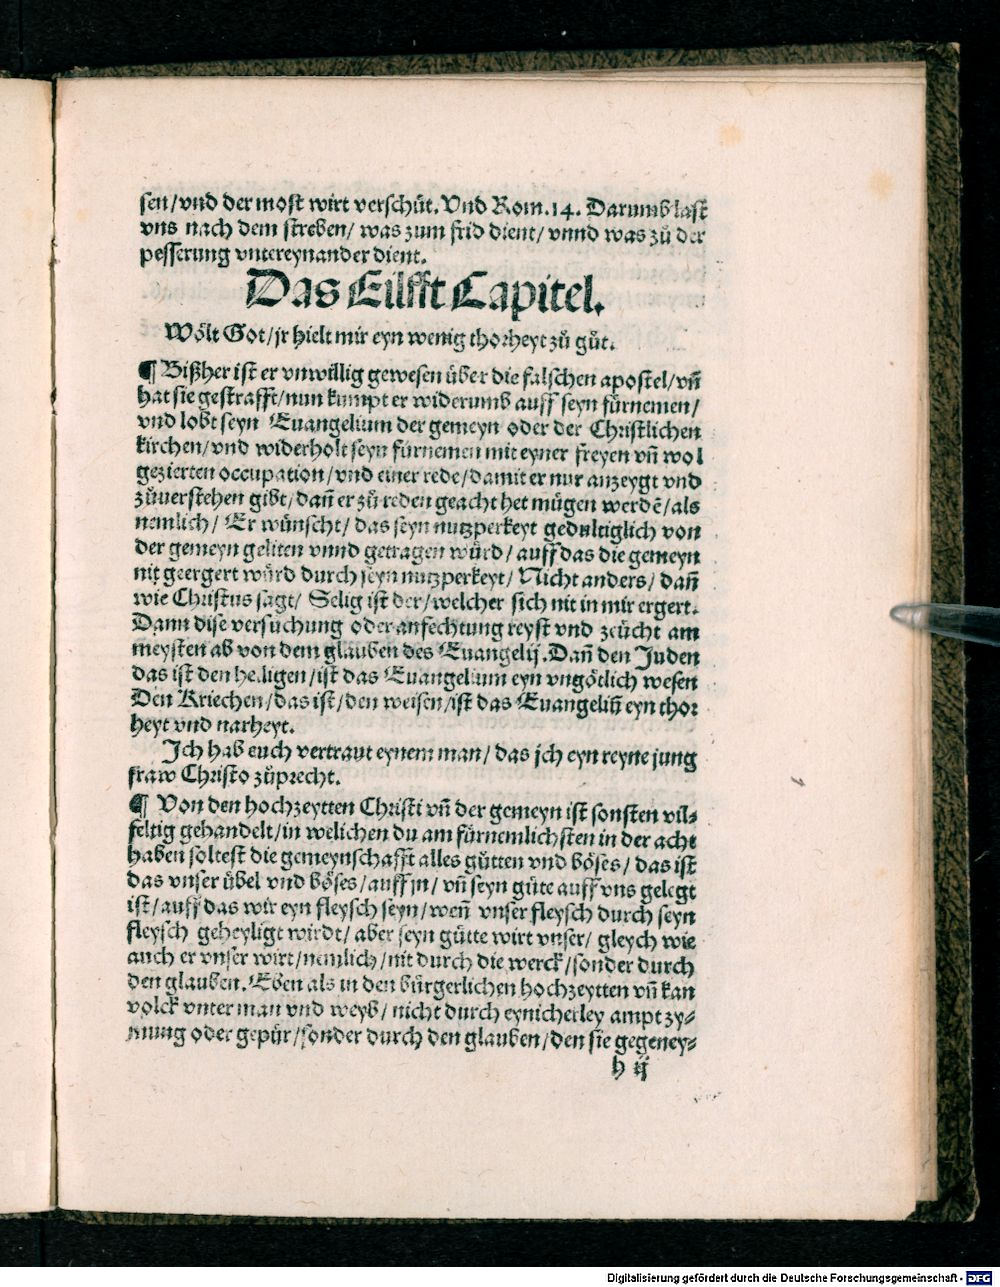 sen/vnd der most wirt verschüt. Vnd Rom. 14. Darumb last
vns nach dem streben/ was zum frid dient/ vnnd was zů der
pesserung vntereynander dient.
Das Eilfft Capitel.
Wölt Got/jr hielt mir eyn wenig thorheyt zů gůt.
¶ Bißher ist er vnwillig gewesen über die falschen apostel/vñ
hat sie gestrafft/nun kumpt er widerumb auff seyn fürnemen/
vnd lobt seyn Euangelium der gemeyn oder der Christlichen
kirchen/vnd widerholt seyn fürnemen mit eyner freyen vñ wol
gezierten occupation/vnd einer rede/damit er nur anzeygt vnd
zůuerstehen gibt/dañ er zů reden geacht het mügen werdē/als
nemlich/ Er wünscht/ das seyn nutzperkeyt gedultiglich von
der gemeyn geliten vnnd getragen würd/ auff das die gemeyn
nit geergert würd durch seyn nutzperkeyt/ Nicht anders/ dañ
wie Christus sagt/ Selig ist der/welcher sich nit in mir ergert.
Dann dise versuchung oder anfechtung reyst vnd zeücht am
meysten ab von dem glauben des Euangelij. Dañ den Juden
das ist den heiligen/ist das Euangelium eyn vngötlich wesen
Den Kriechen/das ist/den weisen/ist das Euangeliū eyn thor
heyt vnd narheyt.
Ich hab euch vertraut eynem man/ das jch eyn reyne jung
fraw Christo zůprecht.
¶ Von den hochzeytten Christi vñ der gemeyn ist sonsten vil⸗
feltig gehandelt/in welichen du am fürnemlichsten in der acht
haben soltest die gemeynschafft alles gůtten vnd böses/ das ist
das vnser übel vnd böses/auff jn/ vñ seyn güte auff vns gelegt
ist/auff das wir eyn fleysch seyn/weñ vnser fleysch durch seyn
fleysch geheyligt wirdt/ aber seyn gütte wirt vnser/ gleych wie
auch er vnser wirt/nemlich/nit durch die werck/sonder durch
den glauben. Eben als in den bürgerlichen hochzeytten vñ kan
volck vnter man vnd weyb/ nicht durch eynicherley ampt zy⸗
mung oder gepür/sonder durch den glauben/den sie gegeney⸗
h ij
Digitalisierung gefördert durch die Deutsche Forschungsgemeinschaft - DFG